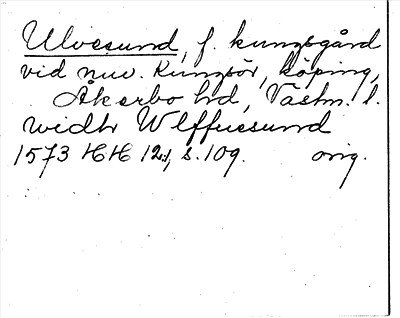 Ulvesund, f. kungsgård
vid nuv. Kungsör, köping,
Åkerbo hd, Västm. l.
widh Wlffuesund
1573 HH 12:, s. 109. orig.